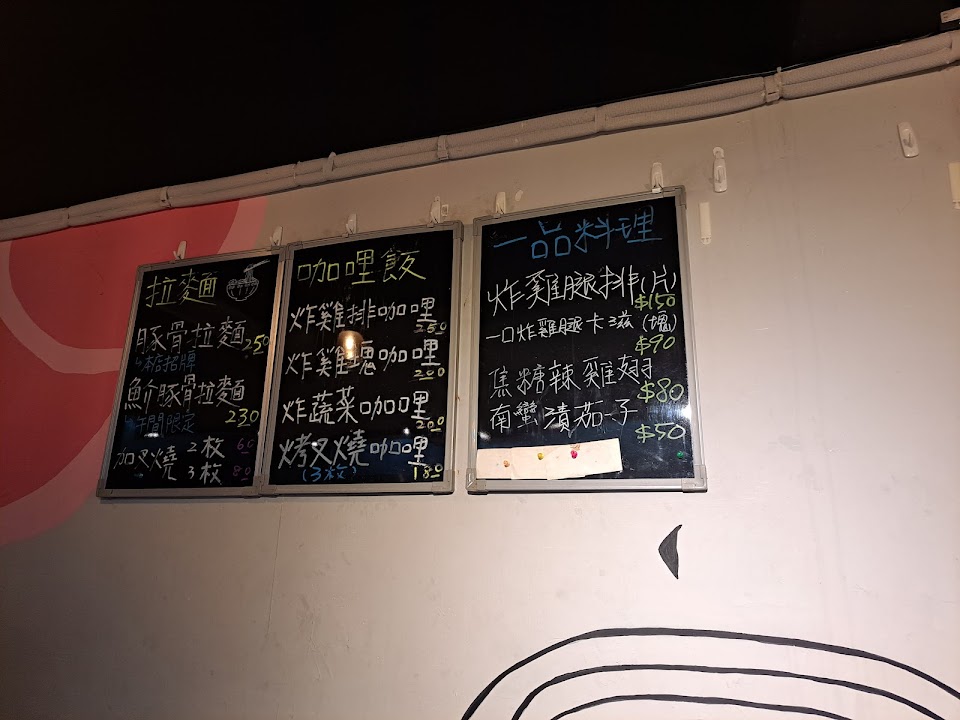 拉麵
豚骨拉麵 250
本店招牌
魚介豚骨拉麵
午間限定 230
加叉燒 2枚 60
3枚 80
咖哩飯
炸雞排咖哩 250
炸雞塊咖哩 200
炸蔬菜咖哩 200
烤叉燒咖哩
(3枚) 180
一品料理
炸雞腿排(片)
$150
一口炸雞腿卡滋(塊)
$90
焦糖辣雞翅
$80
南蠻漬茄子
$50